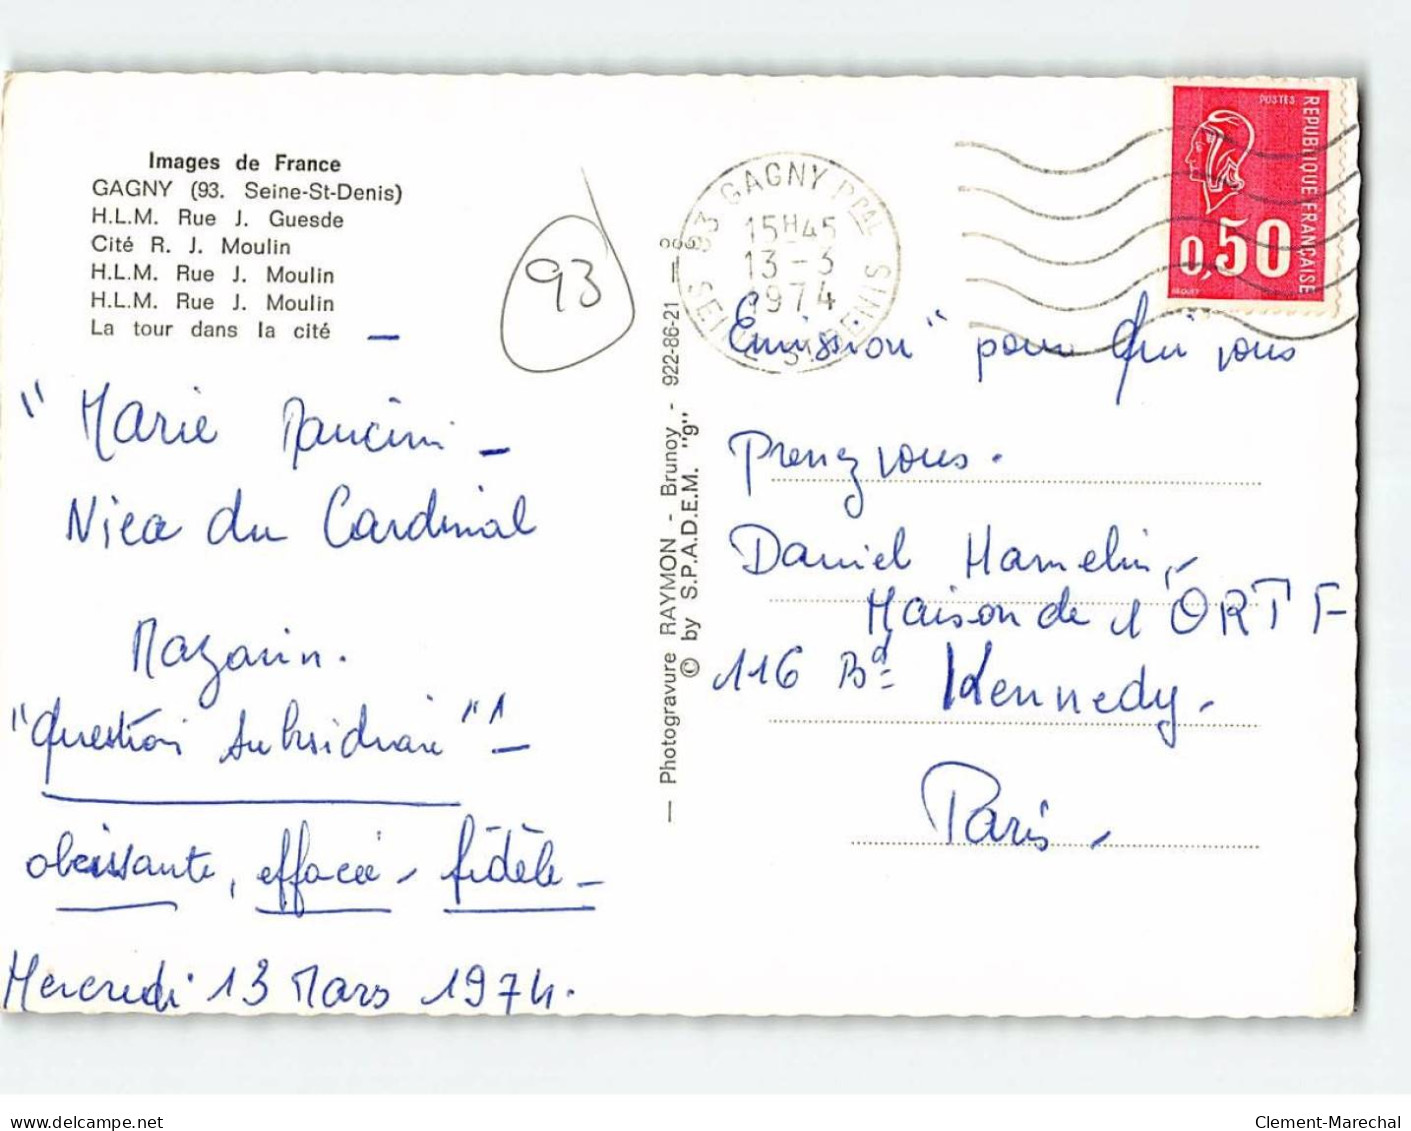 Images de France
GAGNY (93. Seine-St-Denis)
H.L.M. Rue J. Guesde
Cité R. J. Moulin
H.L.M. Rue J. Moulin
H.L.M. Rue J. Moulin
La tour dans la cité
93
"Marie Mancini -
Niea du Cardinal
Mazarin.
"Question subsidiaire"1-
obéissante, effacée, fidèle -
Mercredi 13 Mars 1974.
— Photogravure RAYMON - Brunoy - 922-86-21 —
© by S.P.A.D.E.M. "9"
93 GAGNY Ppal
15H45
13-3
1974
SEINE ST DENIS
POSTES
REPUBLIQUE FRANÇAISE
0,50
BEQUET
Emission "pour qui vous
Prenez vous.
Daniel Hamelin,
Maison de l'ORTF
116 Bd Kennedy.
Paris.
delcampe.net
Clement-Marechal